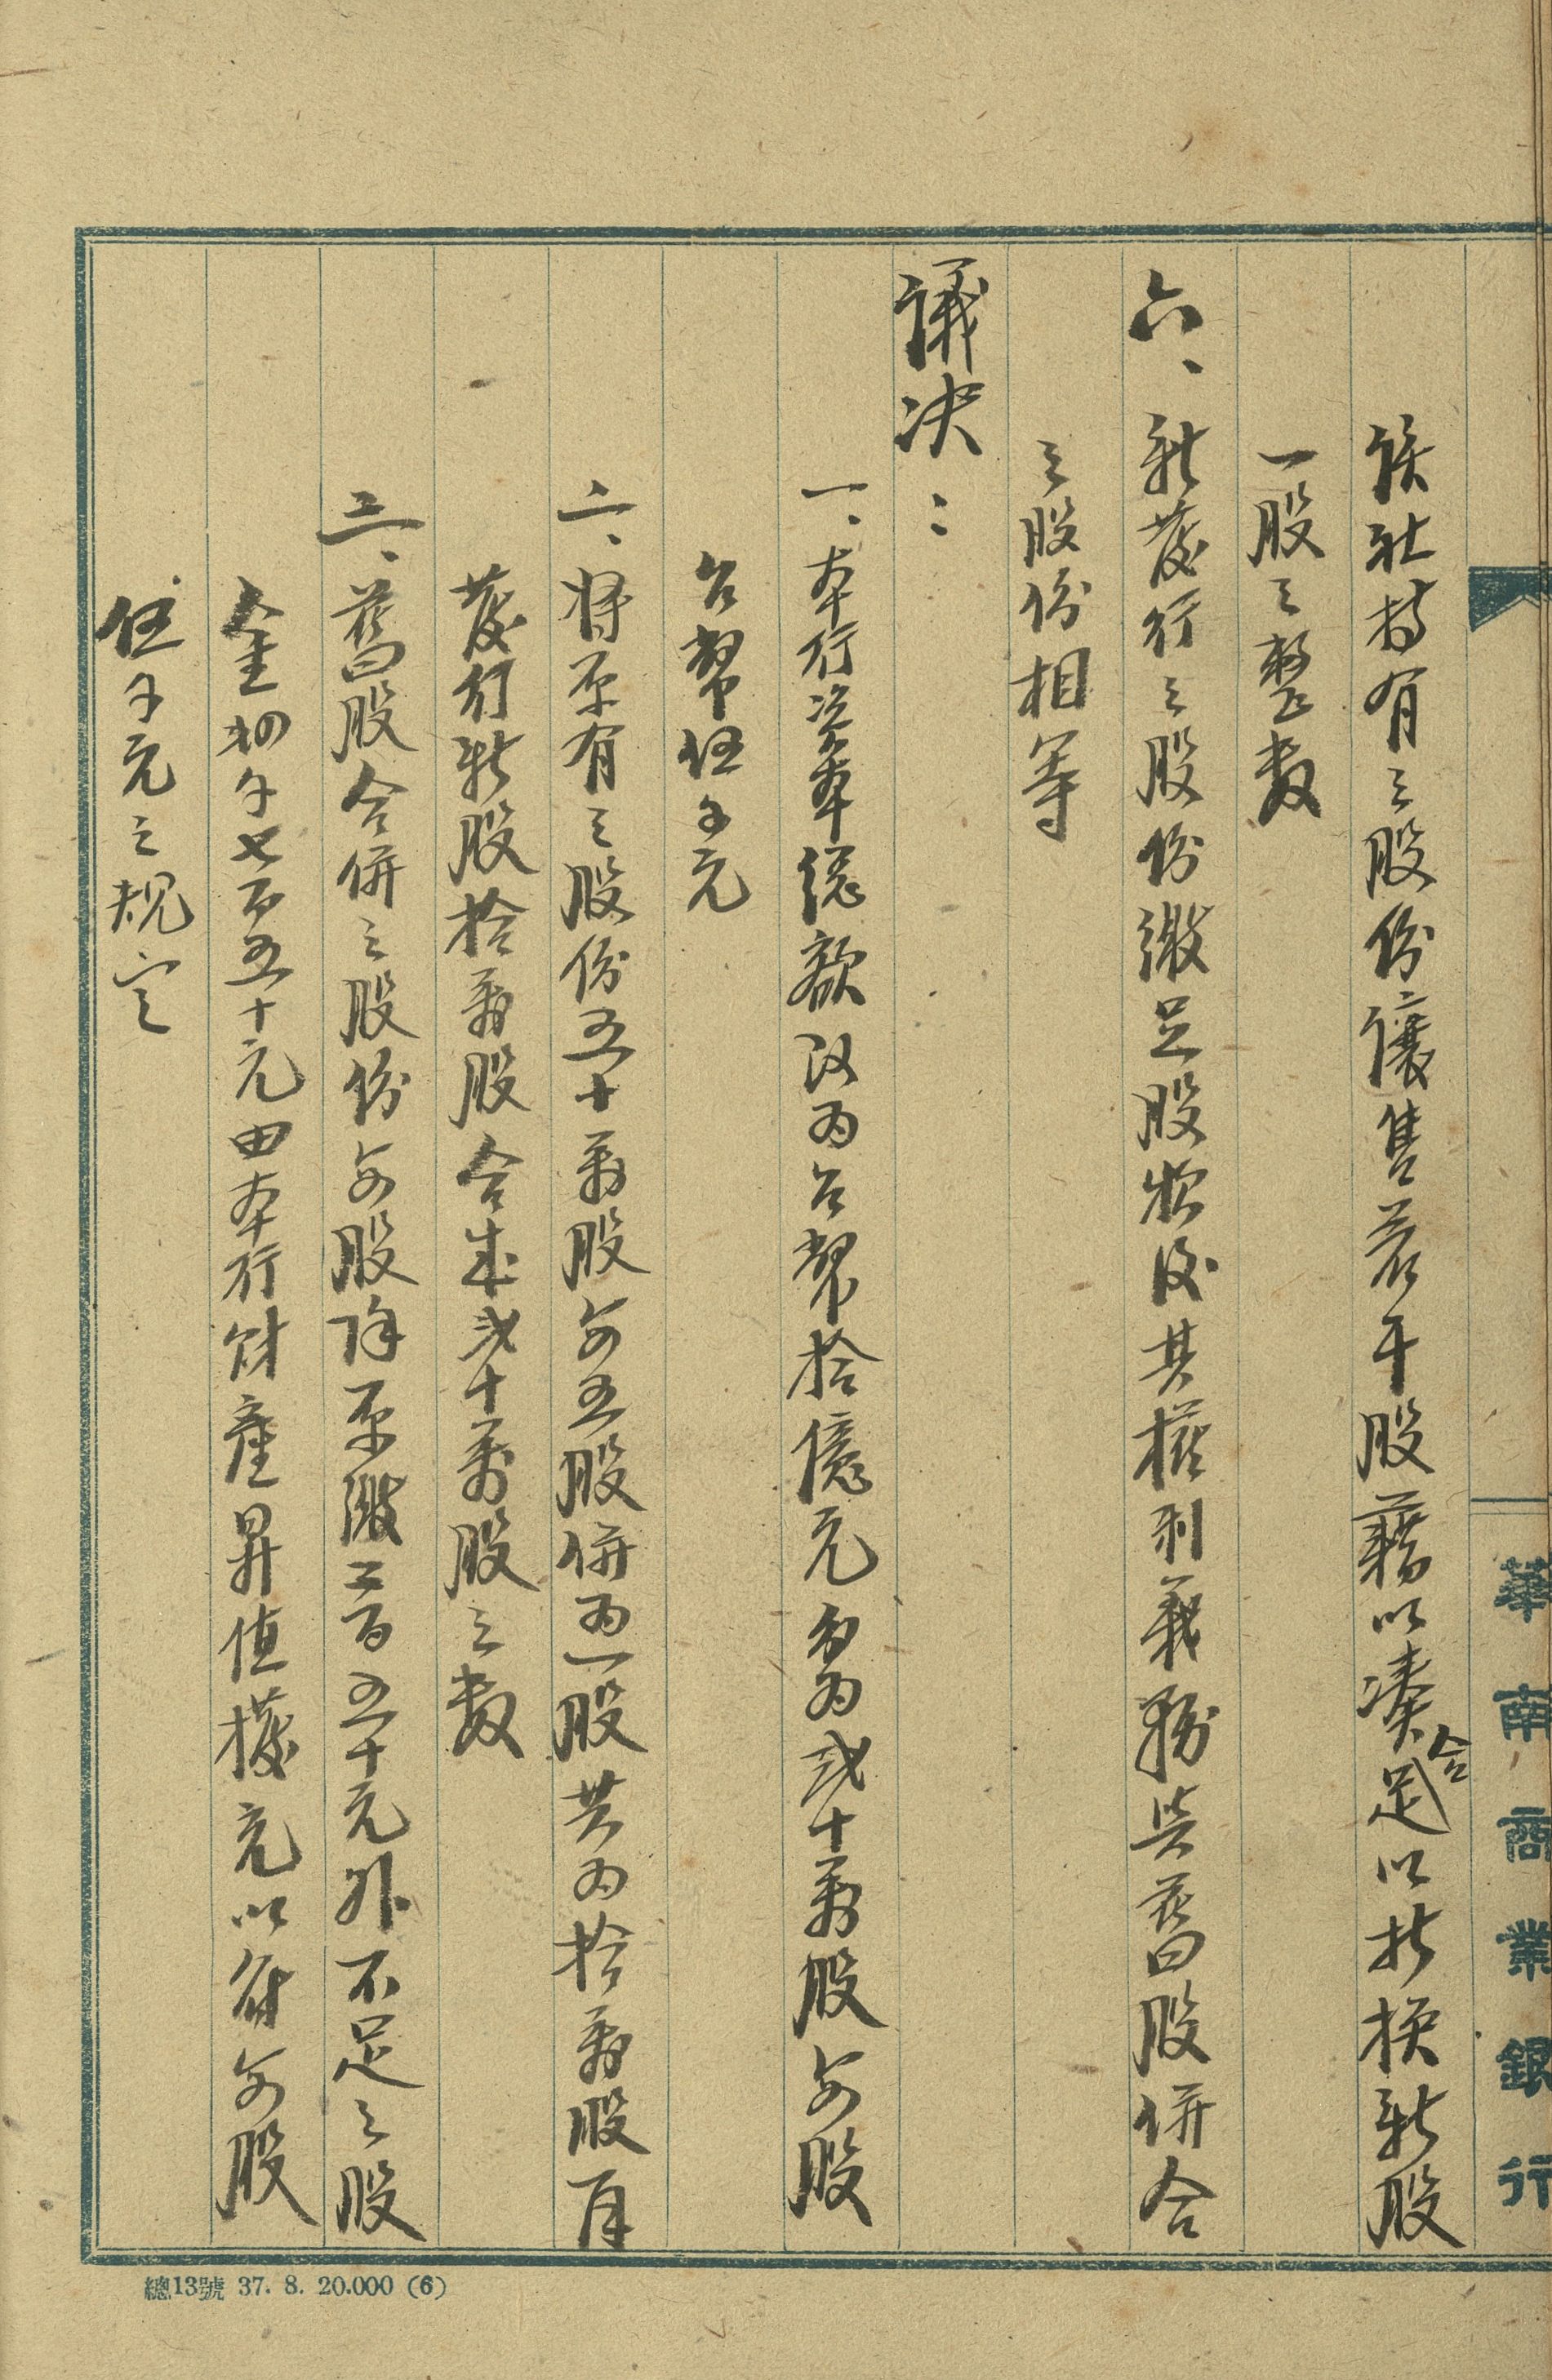 華南商業銀行
該社持有之股份讓售若干股藉以湊合足以折換新股
一股之整數
六、新發行之股份繳足股款後其權利義務與舊股併合
之股份相等
議決：
一、本行資本總額改為台幣拾億元分為弍十萬股每股
台幣伍千元
二、將原有之股份五十萬股每五股併為一股共為拾萬股再
發行新股拾萬股合成弍十萬股之數
三、舊股合併之股份每股除原繳二百五十元外不足之股
金四千七百五十元由本行財產昇值撥充以符每股
伍千元之規定
總13號 37. 8. 20.000 (6)